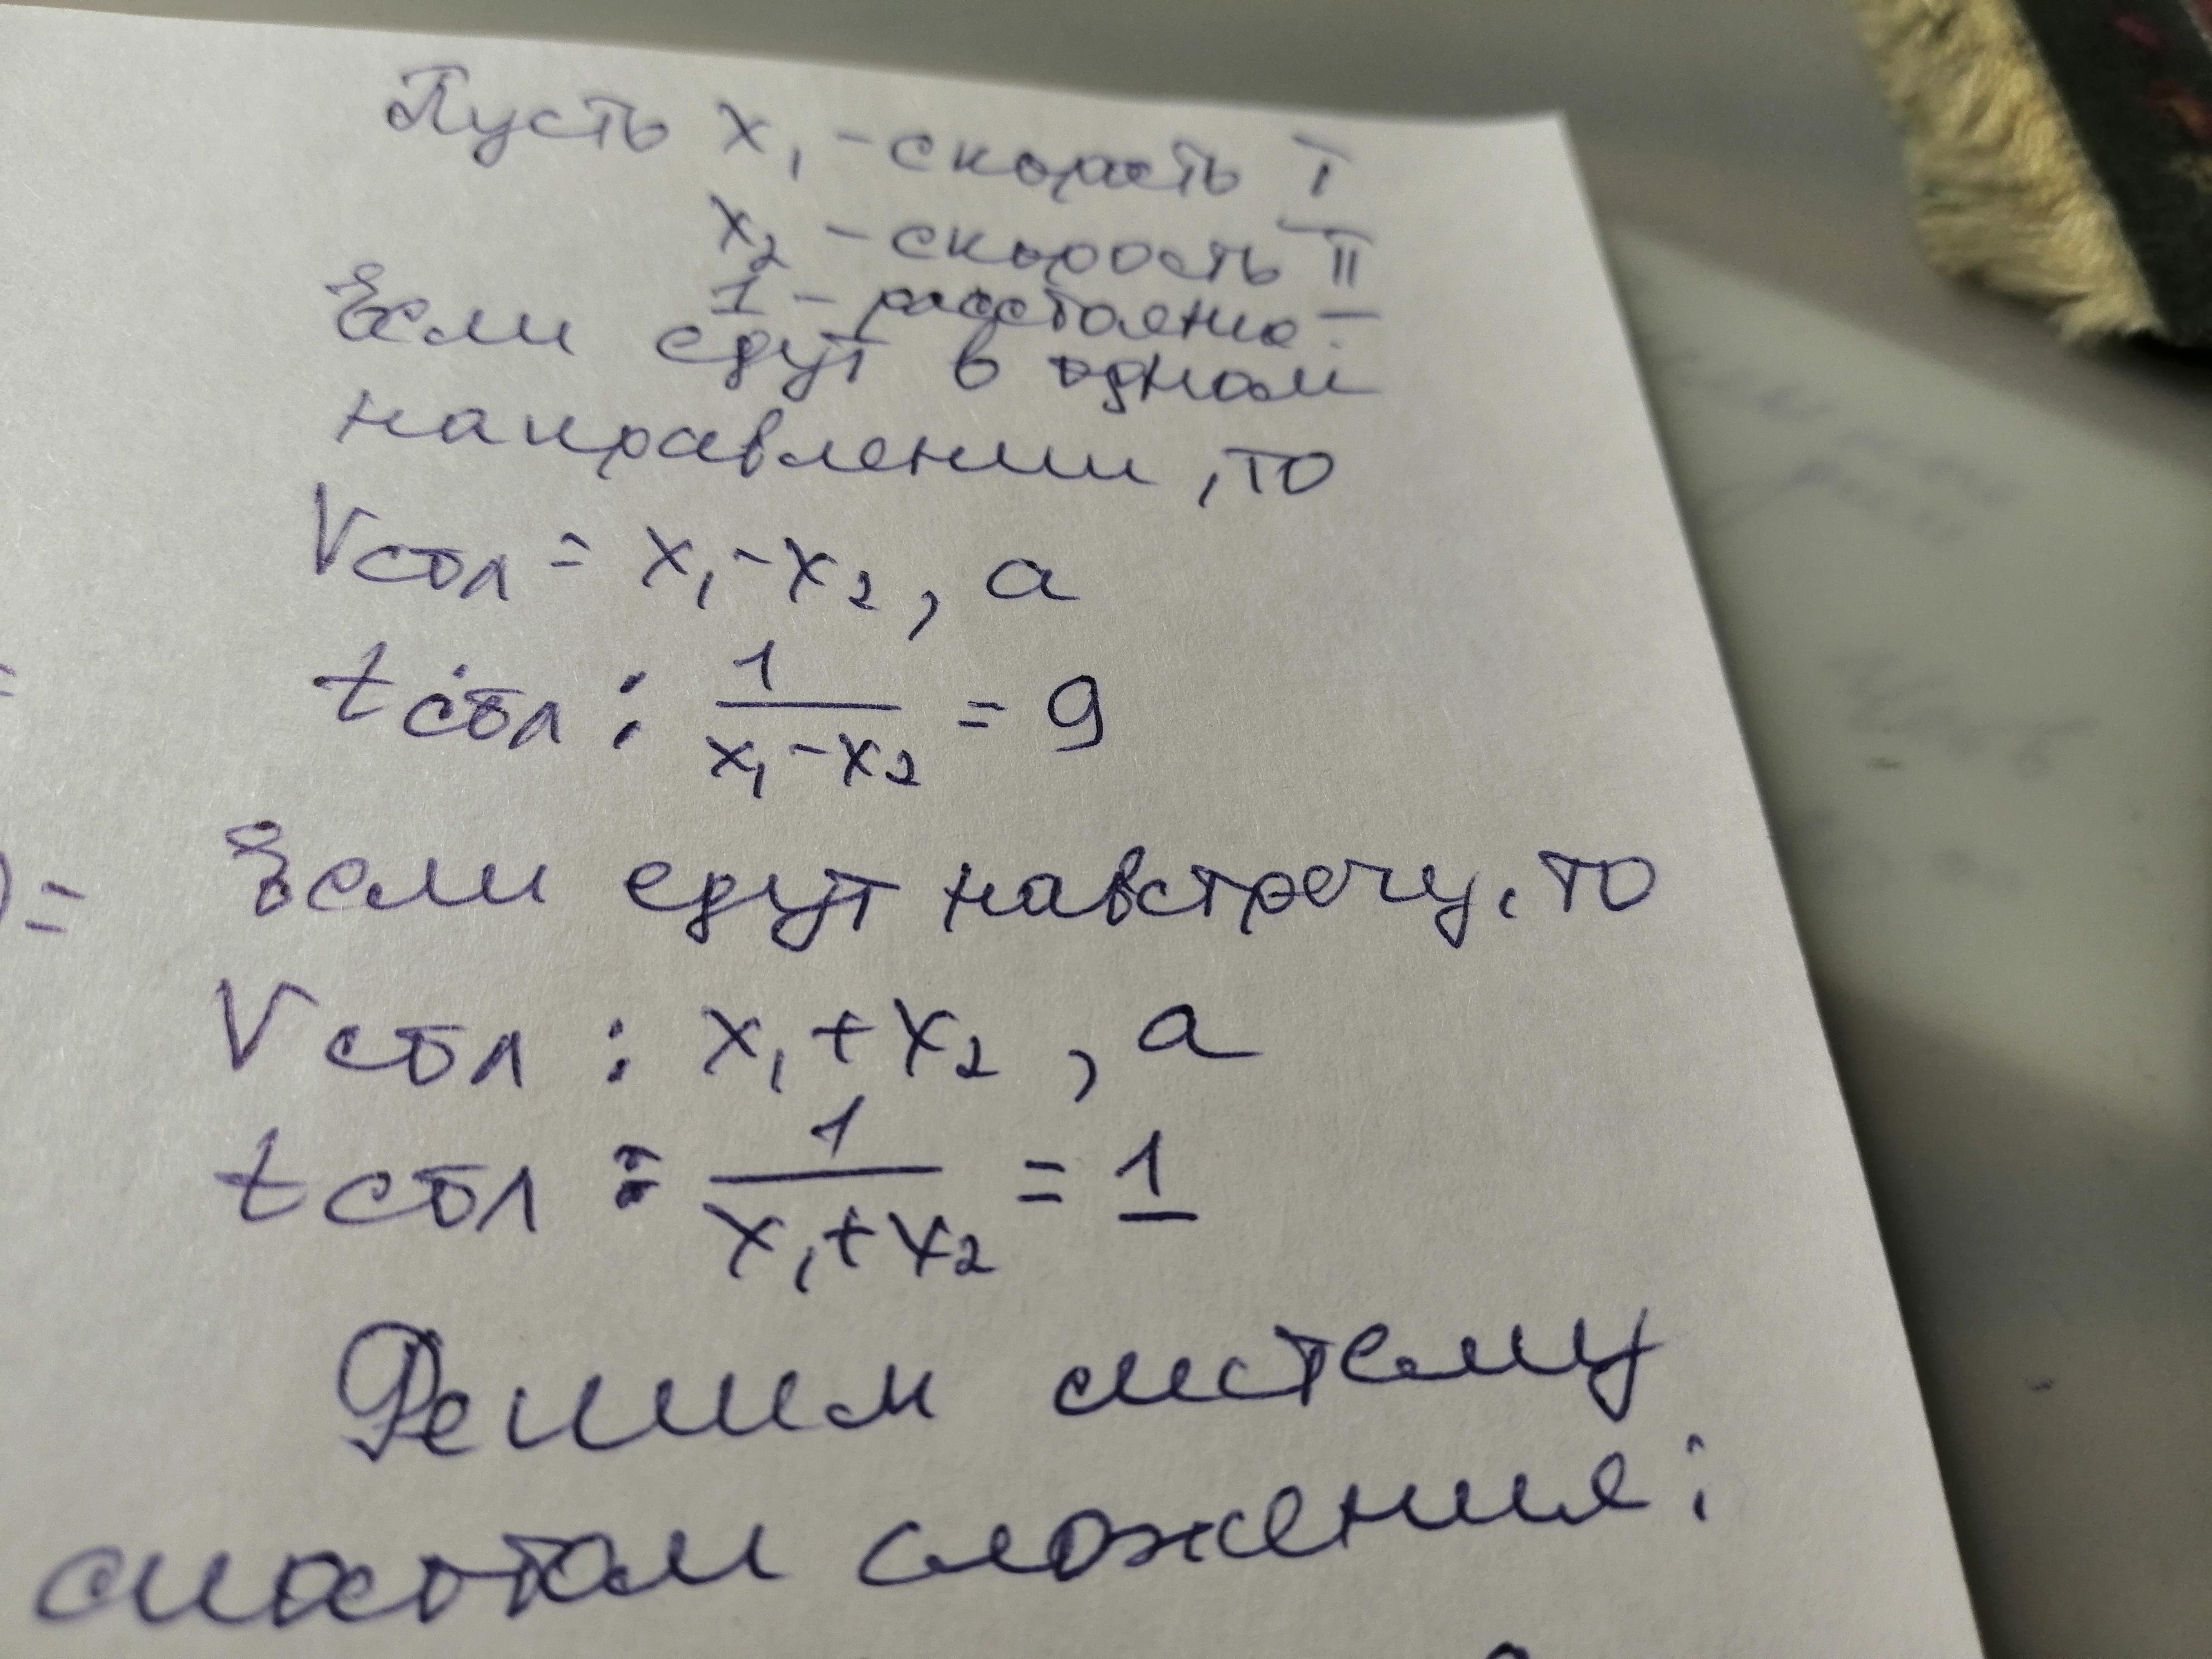 Пусть x₁ - скорость I
x₂ - скорость II
1 - расстояние
Если едут в одном
направлении, то
Vсбл = x₁ - x₂, а
tсбл : 1/(x₁ - x₂) = 9
Если едут навстречу, то
Vсбл : x₁ + x₂, а
tсбл : 1/(x₁ + x₂) = 1
Решим систему
способом сложения: